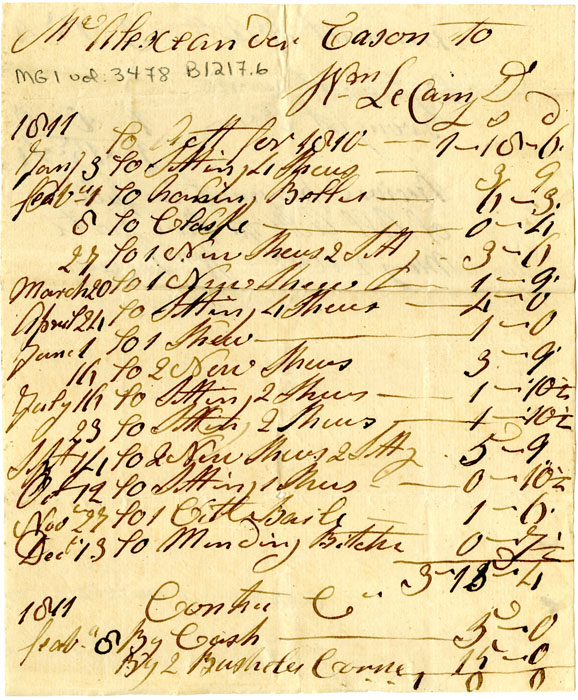 Mr Alexander Cason to
MG1 vol. 3478 B1217.6
Wm LeCain Dr
1811 s d
to Actt for 1810 1-18-6
Jany 3 to Sitting 4 Shews 3 9
feaby 1 to Chaining Bottes 3
8 to Claspe 0-4
27 to 1 New Shews 2 Sittg 3-
March 20 to 1 New Shew 1-9
April 24 to Sitting 4 Shews 4-0
June 1 to 1 Shew 1-0
to 2 New Shews 3-9
July to Sitting 2 Shews 1-10½
23 to Sitting 2 Shews 1-10½
Sept 4 to 2 New Shews 2 Sittg 5-9
Oct 12 to Sitting 1 Shews 0-10½
Nov 27 to 1 Baile 1-6
Dec 13 to Minding Bitche 0-7½
3-13-4
1811 Contra Cr
feaby 8 By Cash 5-0
By 2 Bushels Corne 15-0
1 0 0